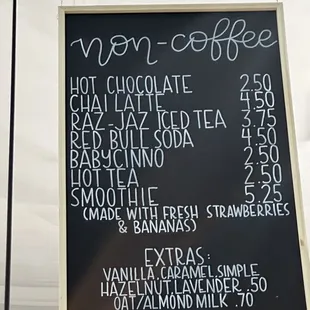 non-coffee
HOT CHOCOLATE 2.50
CHAI LATTE 4.50
RAZ-JAZ ICED TEA 3.75
RED BULL SODA 4.50
BABYCINNO 2.50
HOT TEA 2.50
SMOOTHIE 5.25
(MADE WITH FRESH STRAWBERRIES
& BANANAS)
EXTRAS:
VANILLA, CARAMEL, SIMPLE
HAZELNUT, LAVENDER .50
OAT/ALMOND MILK .70